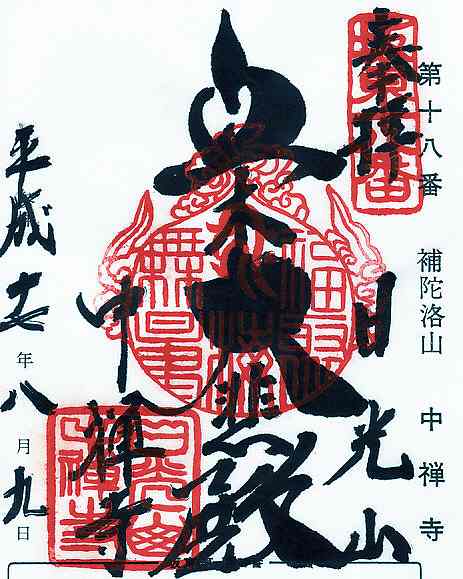 奉拝
第十八番 補陀洛山 中禅寺
日光山
大悲殿
中禅寺
平成十七年八月九日